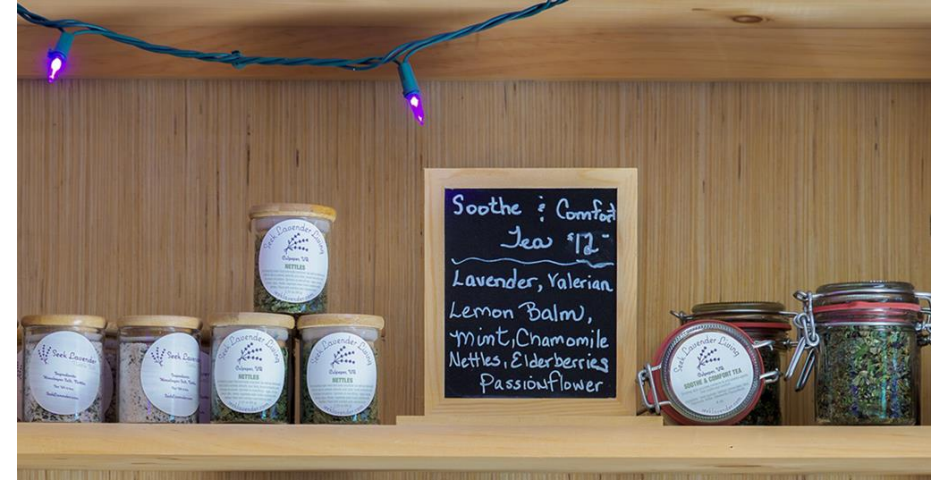 Soothe & Comfort
Tea $12-
Lavender, Valerian
Lemon Balm,
Mint, Chamomile
Nettles, Elderberries
Passionflower
Seek Lavender Living
Culpeper, VA
NETTLES
Seek Lavender
Seek Lavender
Seek Lavender Living
Culpeper, VA
NETTLES
Seek Lavender Living
Culpeper, VA
NETTLES
Seek Lavender Living
Culpeper, VA
SOOTHE & COMFORT TEA